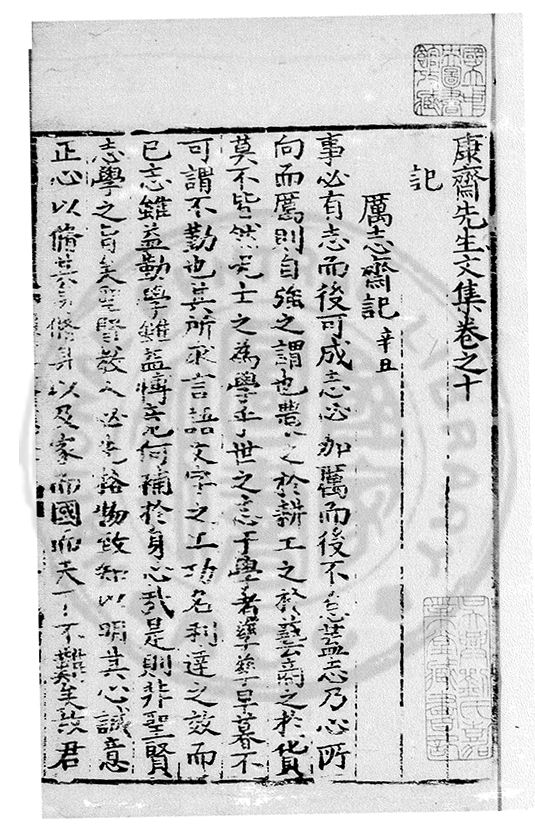 康齋先生文集卷之十
記
厲志齋記 辛丑
事必有志而後可成志必加厲而後不怠蓋志乃心所
向而厲則自強之謂也農之於耕工之於藝商之於貨
莫不皆然況士之為學乎世之志于學者孳孳旦暮不
可謂不勤也其所求言語文字之工功名利達之效而
已志雖益勤學雖益博竟何補於身心哉是則非聖賢
志學之旨矣聖賢教人必先格物致知以明其心誠意
正心以脩其身脩身以及家而國而天下不難矣故君